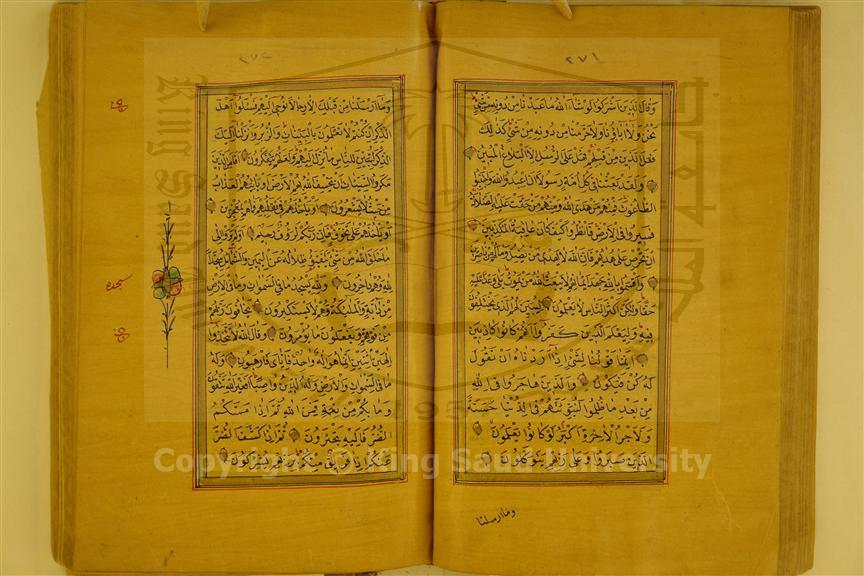 ٢٧١
وقال الذين اشركوا لو شاء الله ما عبدنا من دونه من شيء
نحن ولا اباؤنا ولا حرمنا من دونه من شيء كذلك
فعل الذين من قبلهم فهل على الرسل الا البلاغ المبين
ولقد بعثنا في كل امة رسولا ان اعبدوا الله واجتنبوا
الطاغوت فمنهم من هدى الله ومنهم من حقت عليه الضلالة
فسيروا في الارض فانظروا كيف كان عاقبة المكذبين
ان تحرص على هديهم فان الله لا يهدي من يضل وما لهم من ناصرين
واقسموا بالله جهد ايمانهم لا يبعث الله من يموت بلى وعدا عليه
حقا ولكن اكثر الناس لا يعلمون ليبين لهم الذي يختلفون
فيه وليعلم الذين كفروا انهم كانوا كاذبين
انما قولنا لشيء اذا اردناه ان نقول
له كن فيكون والذين هاجروا في الله
من بعد ما ظلموا لنبوئنهم في الدنيا حسنة
ولاجر الاخرة اكبر لو كانوا يعلمون
الذين صبروا وعلى ربهم يتوكلون
وما ارسلنا
٢٧٢
وما ارسلنا من قبلك الا رجالا نوحي اليهم فسئلوا اهل
الذكر ان كنتم لا تعلمون بالبينات والزبر وانزلنا اليك
الذكر لتبين للناس ما نزل اليهم ولعلهم يتفكرون افامن الذين
مكروا السيئات ان يخسف الله بهم الارض او ياتيهم العذاب
من حيث لا يشعرون او ياخذهم في تقلبهم فما هم بمعجزين
او ياخذهم على تخوف فان ربكم لرؤف رحيم اولم يروا الى
ما خلق الله من شيء يتفيؤا ظلاله عن اليمين والشمائل سجدا
لله وهم داخرون ولله يسجد ما في السموات وما في الارض
من دابة والملئكة وهم لا يستكبرون يخافون ربهم
من فوقهم ويفعلون ما يؤمرون وقال الله لا تتخذوا
الهين اثنين انما هو اله واحد فاياي فارهبون وله
ما في السموات والارض وله الدين واصبا افغير الله تتقون
وما بكم من نعمة فمن الله ثم اذا مسكم
الضر فاليه تجئرون ثم اذا كشف الضر
عنكم اذا فريق منكم بربهم يشركون
سجده
Copyright © King Saud University
King Saud University
جامعة الملك سعود
1957